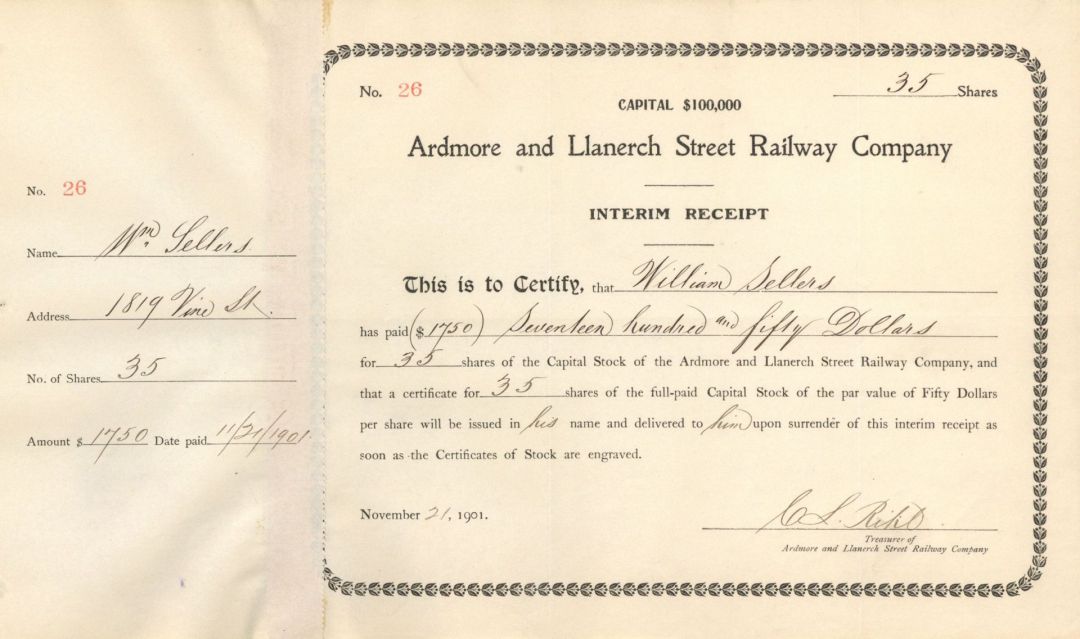 No. 26
Name Wm Sellers
Address 1819 Vine St.
No. of Shares 35
Amount $ 1750 Date paid 11/21/1901
No. 26
35 Shares
CAPITAL $100,000
Ardmore and Llanerch Street Railway Company
INTERIM RECEIPT
This is to Certify, that William Sellers
has paid ($1750) Seventeen hundred and fifty Dollars
for 35 shares of the Capital Stock of the Ardmore and Llanerch Street Railway Company, and
that a certificate for 35 shares of the full-paid Capital Stock of the par value of Fifty Dollars
per share will be issued in his name and delivered to him upon surrender of this interim receipt as
soon as the Certificates of Stock are engraved.
November 21, 1901.
C L. Rihl
Treasurer of
Ardmore and Llanerch Street Railway Company